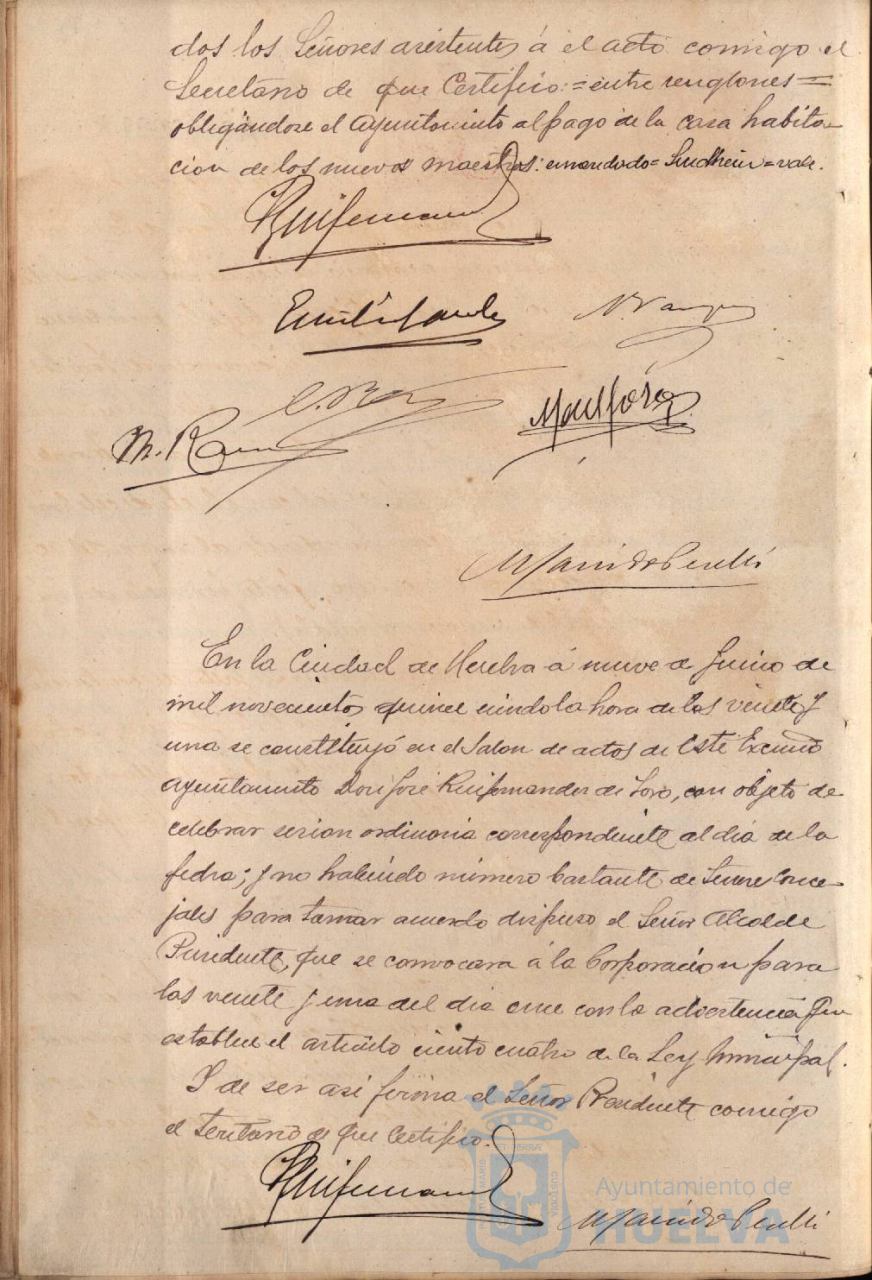 dos los Señores asistentes á el acto comigo el
Secretario de que Certifico:=entre renglones=
obligándose el Ayuntamiento al pago de la casa habita-
cion de los nuevos maestros: enmendado= Sundheim =vale.
Ruifernandez
N. Vazquez
M. Ram
En la Ciudad de Huelva á nueve de Junio de
mil novecientos quince siendo la hora de las veinte y
una se constituyó en el Salon de actos de este Excmo
Ayuntamiento Don José Ruifernandez de Toro, con objeto de
celebrar sesion ordinaria correspondiente al dia de la
fecha; y no habiendo número bastante de Señores Conce-
jales para tomar acuerdo dispuso el Señor Alcalde
Presidente, que se convocara á la Corporación para
las veinte y una del dia once con la advertencia que
establece el articulo ciento cuatro de la Ley Municipal.
Y de ser asi firma el Señor Presidente comigo
el Secretario de que Certifico.
Ruifernandez
Ayuntamiento de
HUELVA